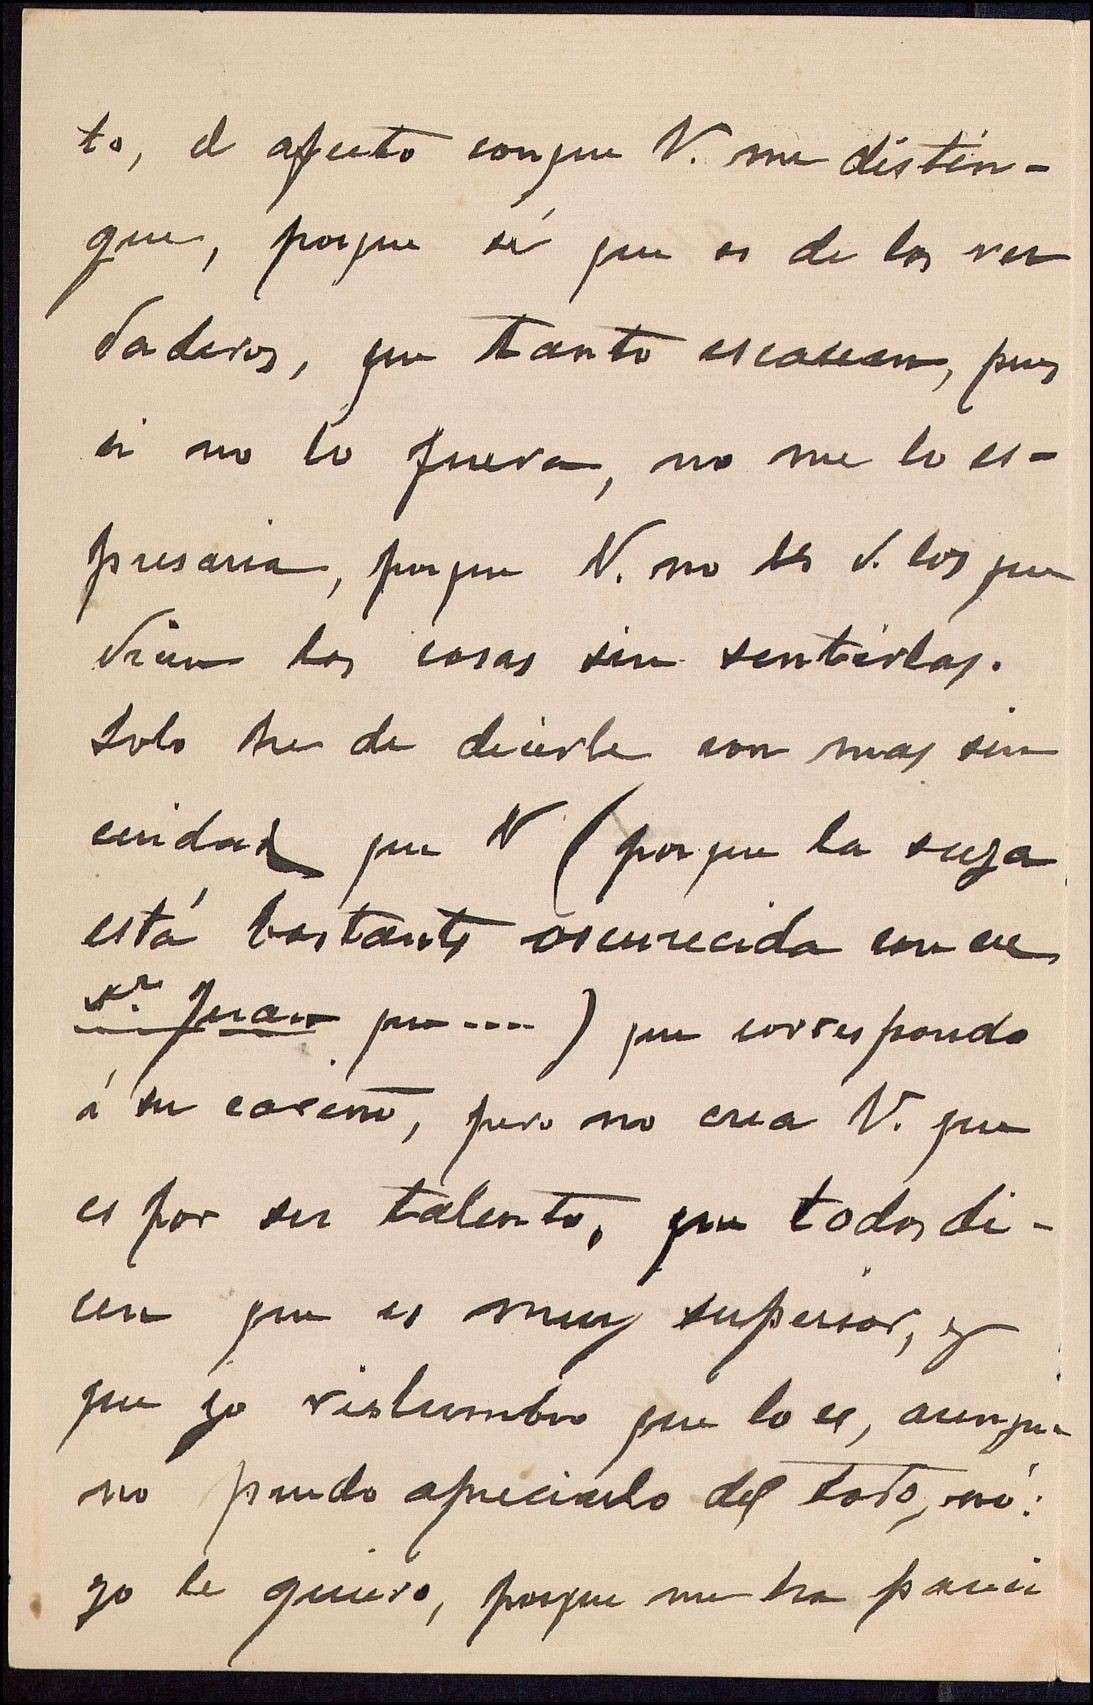 to, el afecto conque V. me distin-
gue, porque sé que es de los ver
daderos, que tanto escasean, pues
si no lo fuera, no me lo es-
presaria, porque V. no es d. los que
dicen las cosas sin sentirlas.
Solo he de decirle con mas sin
ceridad que V (porque la suya
está bastante oscurecida con ese
Sr. Juan que ----) que correspondo
á su cariño, pero no crea V. que
es por su talento, que todos di-
cen que es muy superior, y
que yo vislumbro que lo es, aunque
no puedo apreciarlo del todo, nó:
yo le quiero, porque me ha pareci